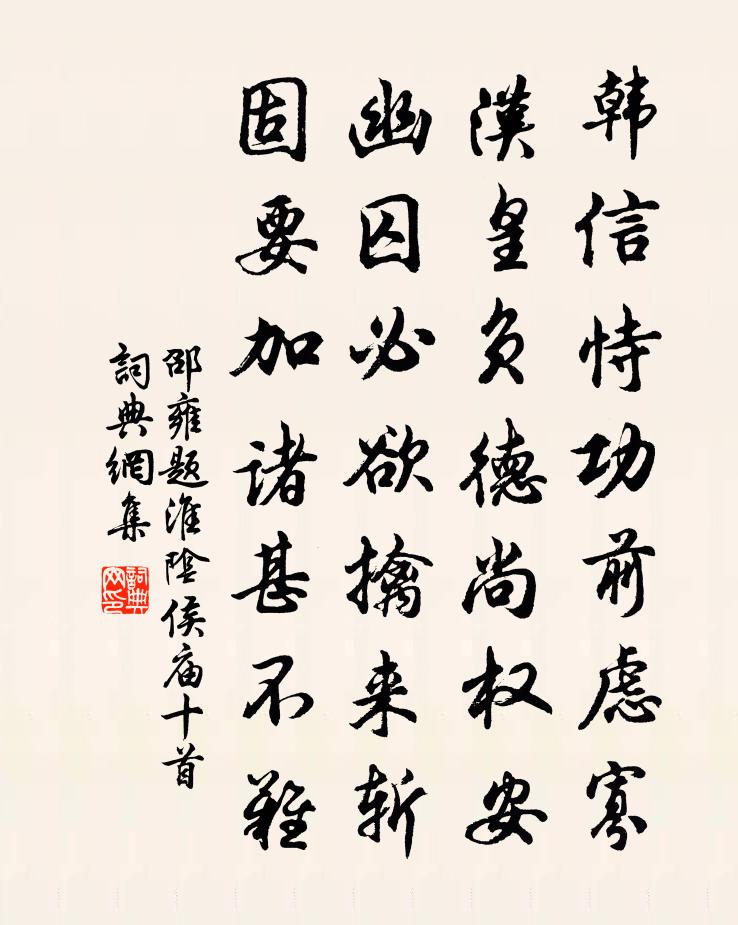 韩信恃功前虑寡
漢皇負德尚权安
幽囚必欲擒来斩
固要加诸甚不難
邵雍题淮陰侯庙十首
詞典網集
詞典网印